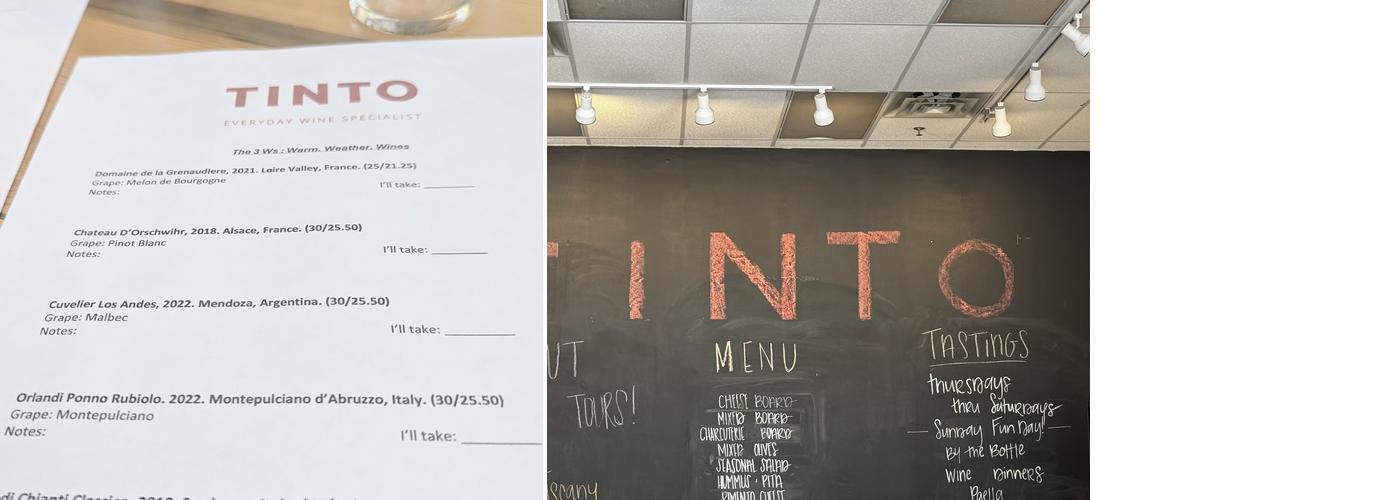 TINTO
EVERYDAY WINE SPECIALIST
The 3 Ws : Warm. Weather. Wines
Domaine de la Grenaudiere, 2021. Loire Valley, France. (25/21.25)
Grape: Melon de Bourgogne
Notes:
I'll take: ________
Chateau D'Orschwihr, 2018. Alsace, France. (30/25.50)
Grape: Pinot Blanc
Notes:
I'll take: ________
Cuvelier Los Andes, 2022. Mendoza, Argentina. (30/25.50)
Grape: Malbec
Notes:
I'll take: ________
Orlandi Ponno Rubiolo. 2022. Montepulciano d'Abruzzo, Italy. (30/25.50)
Grape: Montepulciano
Notes:
I'll take: ________
Chianti Classico.
INTO
UT
TOURS!
MENU
CHEESE BOARD
MIXED BOARD
CHARCUTERIE BOARD
MIXED OLIVES
SEASONAL SALAD
HUMMUS + PITA
PIMENTO CHEESE
TASTINGS
thursdays
thru Saturdays
— Sunday Fun Day! —
By the Bottle
Wine Dinners
Paella